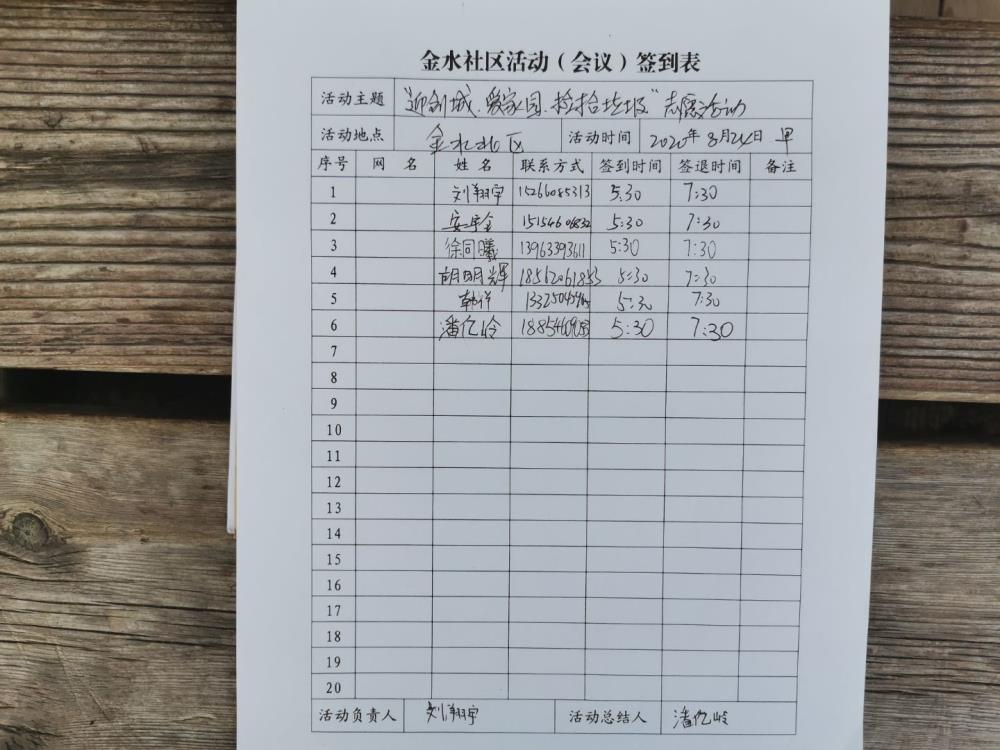 金水社区活动（会议）签到表
活动主题 "迎创城、爱家园、捡拾垃圾"志愿活动
活动地点 金水北区 活动时间 2020年8月24日 早
序号 网 名 姓 名 联系方式 签到时间 签退时间 备注
1 刘翔宇 15266085313 5:30 7:30
2 安宇全 5:30 7:30
3 徐同曦 13963393611 5:30 7:30
4 胡明辉 18562061853 5:30 7:30
5 韩祥 5:30 7:30
6 潘亿岭 5:30 7:30
7
8
9
10
11
12
13
14
15
16
17
18
19
20
活动负责人 刘翔宇 活动总结人 潘亿岭